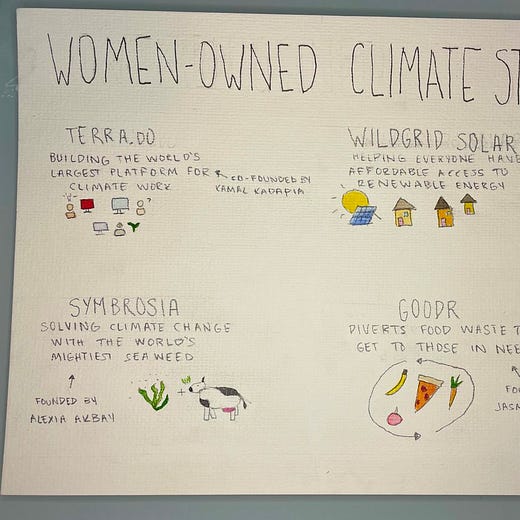 WOMEN-OWNED CLIMATE ST
TERRA.DO
BUILDING THE WORLD'S
LARGEST PLATFORM FOR
CLIMATE WORK
CO-FOUNDED BY
KAMAL KADAPIA
WILDGRID SOLAR
HELPING EVERYONE HAVE
AFFORDABLE ACCESS TO
RENEWABLE ENERGY
SYMBROSIA
SOLVING CLIMATE CHANGE
WITH THE WORLD'S
MIGHTIEST SEAWEED
FOUNDED BY
ALEXIA AKBAY
GOODR
DIVERTS FOOD WASTE T
GET TO THOSE IN NEE
FOU
JASM